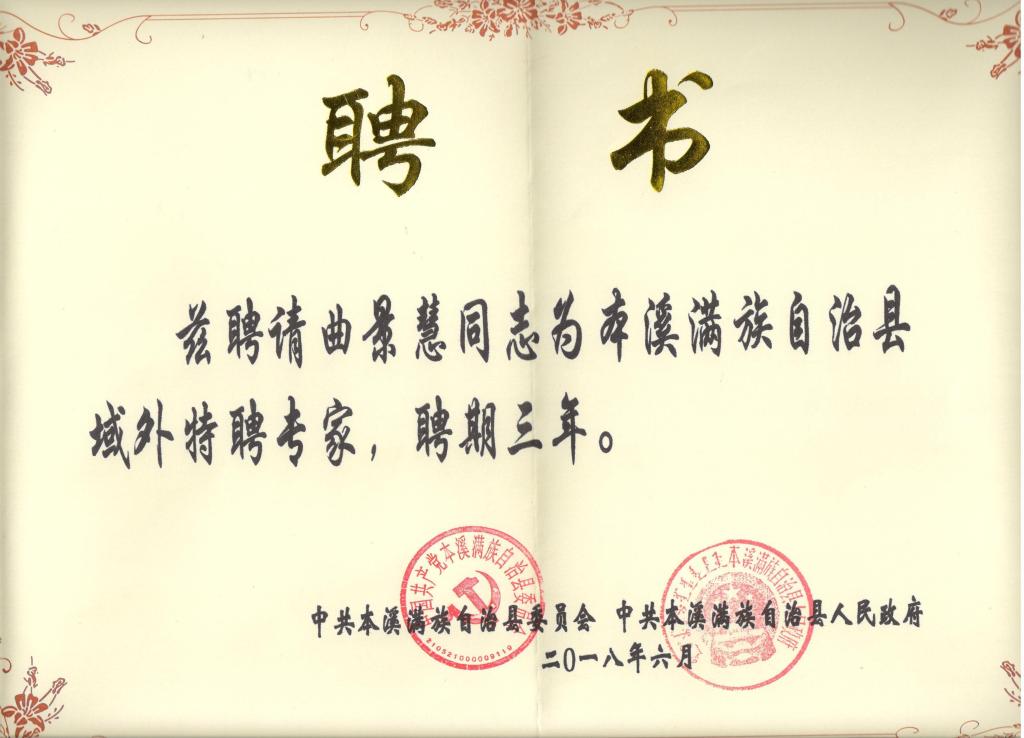 聘 书
兹聘请曲景慧同志为本溪满族自治县
域外特聘专家，聘期三年。
中国共产党本溪满族自治县委员会
210521000009119
本溪满族自治县人民政府
中共本溪满族自治县委员会 中共本溪满族自治县人民政府
二〇一八年六月